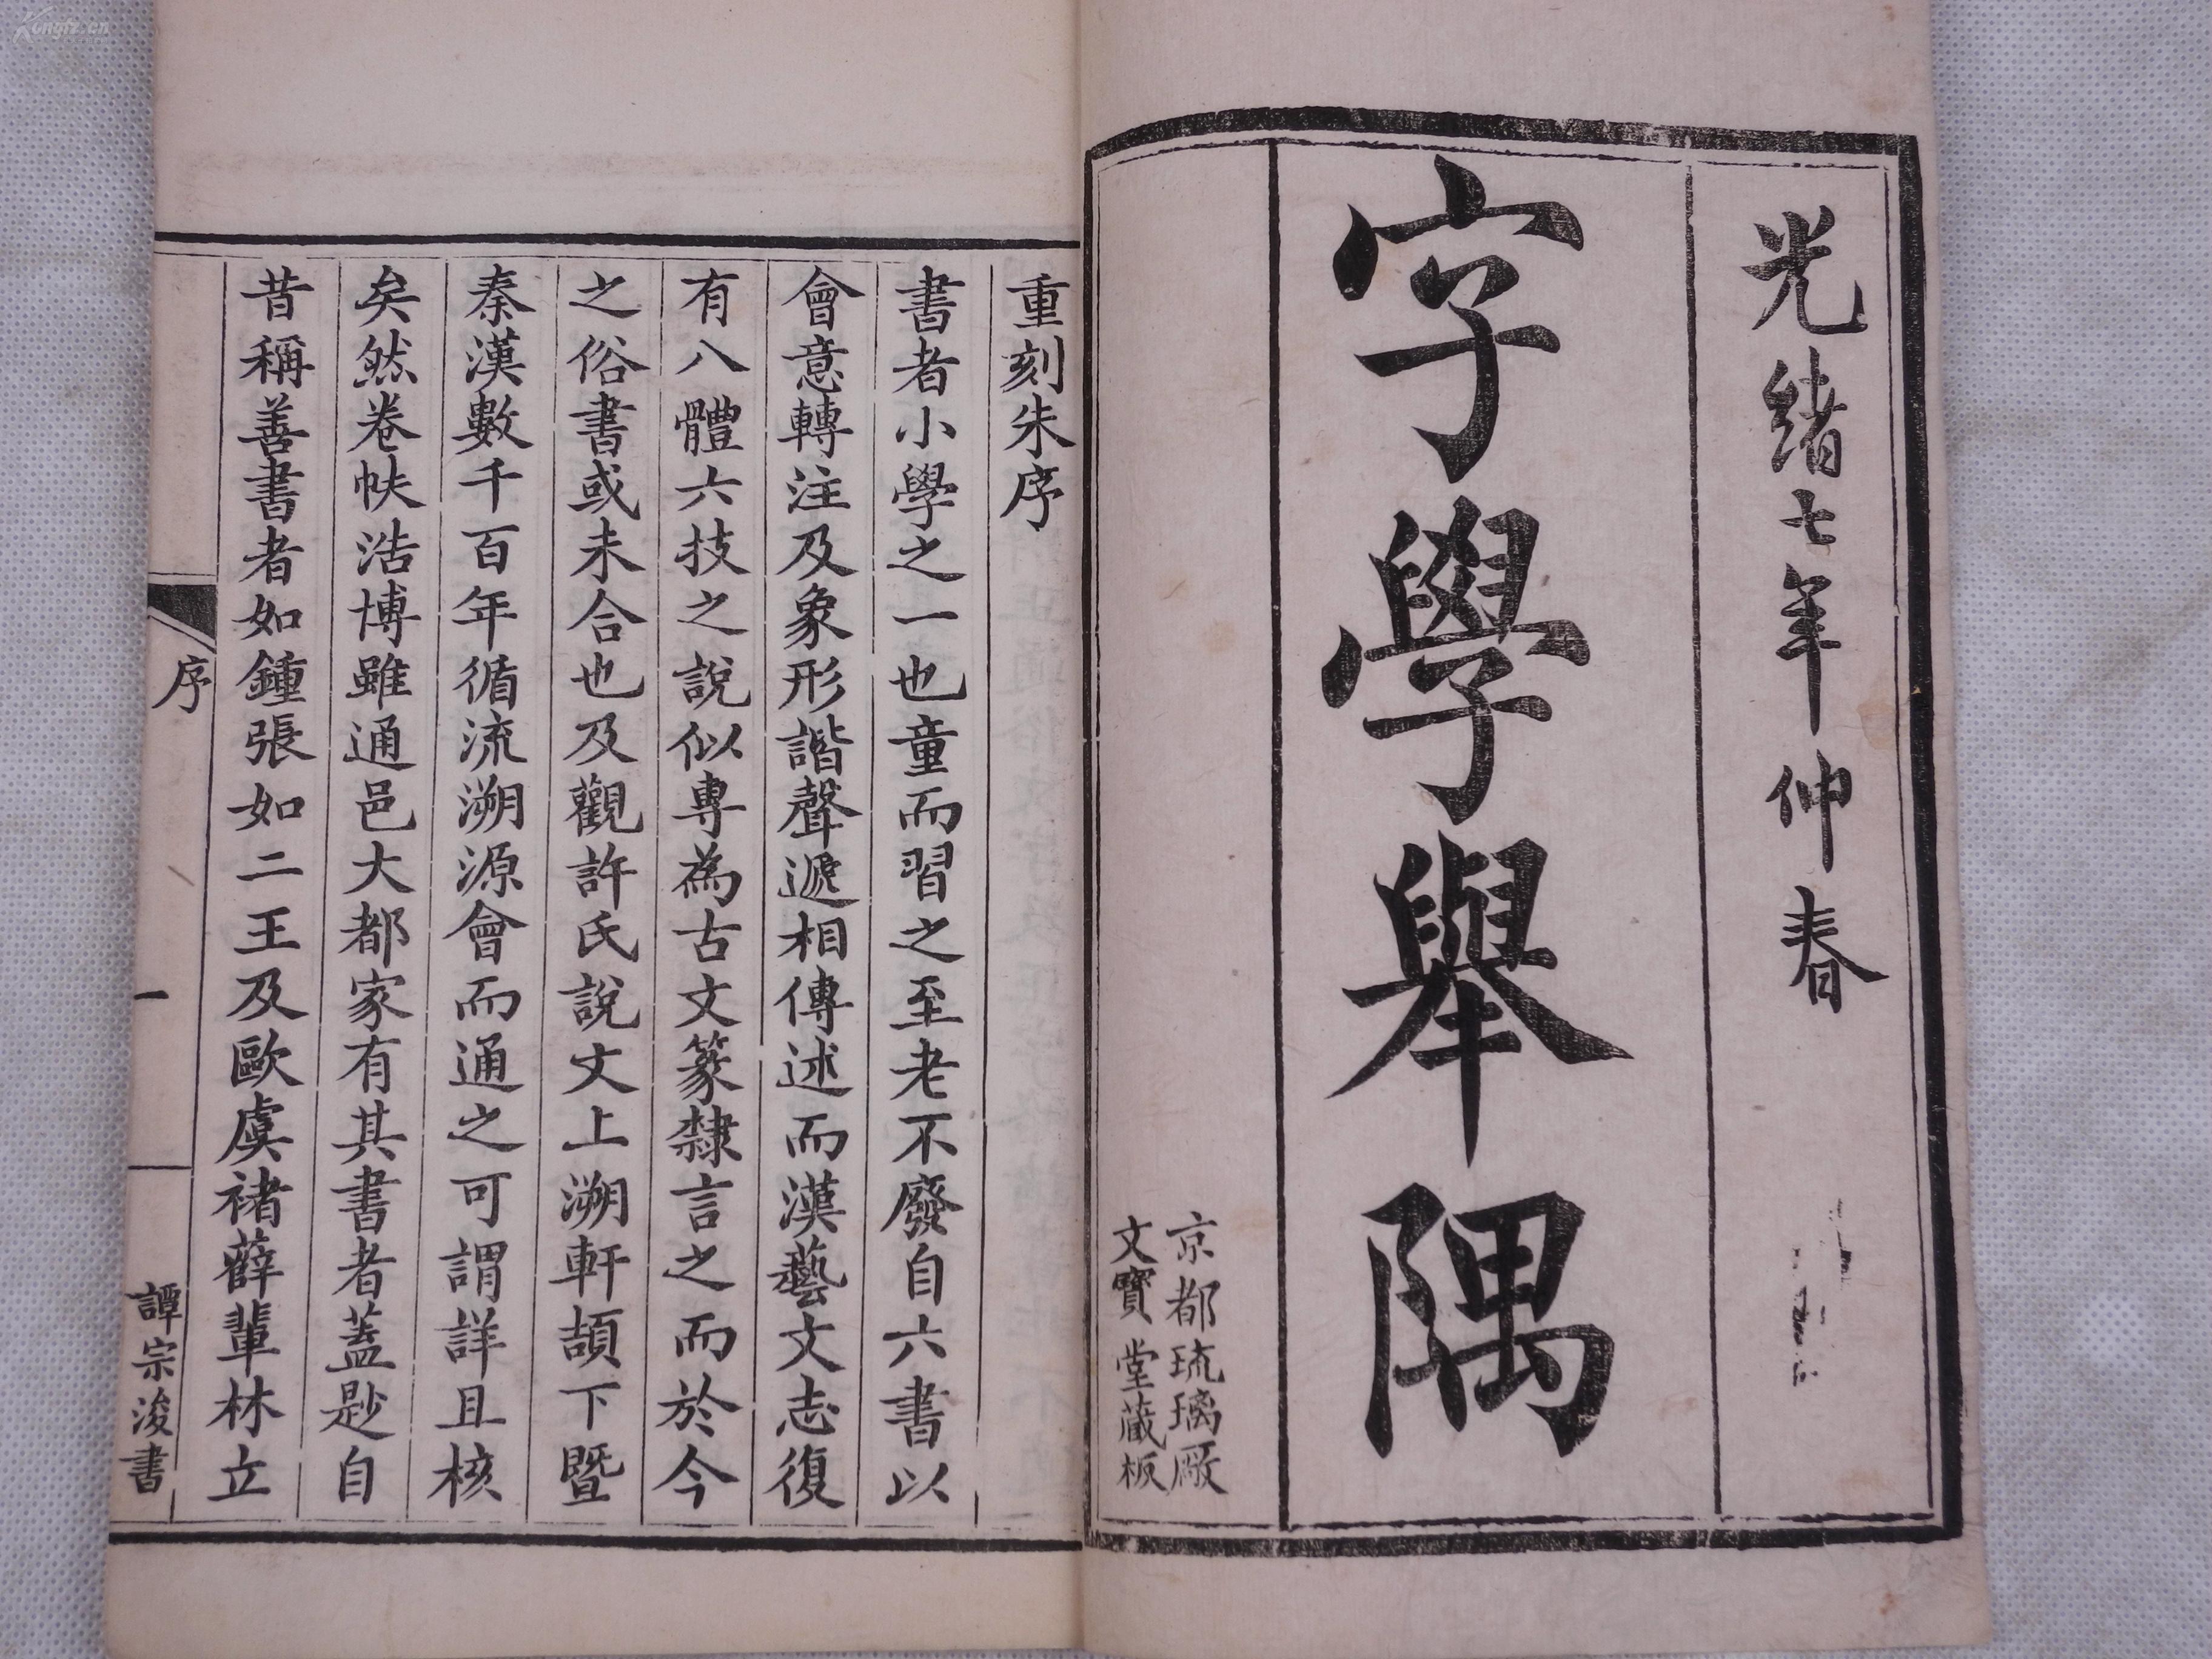 Kongfz.cn
光緒七年仲春
字學舉隅
京都琉璃厰
文寶堂藏板
重刻朱序
書者小學之一也童而習之至老不廢自六書以
會意轉注及象形諧聲遞相傳述而漢藝文志復
有八體六技之說似專為古文篆隸言之而於今
之俗書或未合也及觀許氏說文上溯軒頡下暨
秦漢數千百年循流溯源會而通之可謂詳且核
矣然卷帙浩博雖通邑大都家有其書者蓋尟自
昔稱善書者如鍾張如二王及歐虞褚薛輩林立
序
一
譚宗浚書